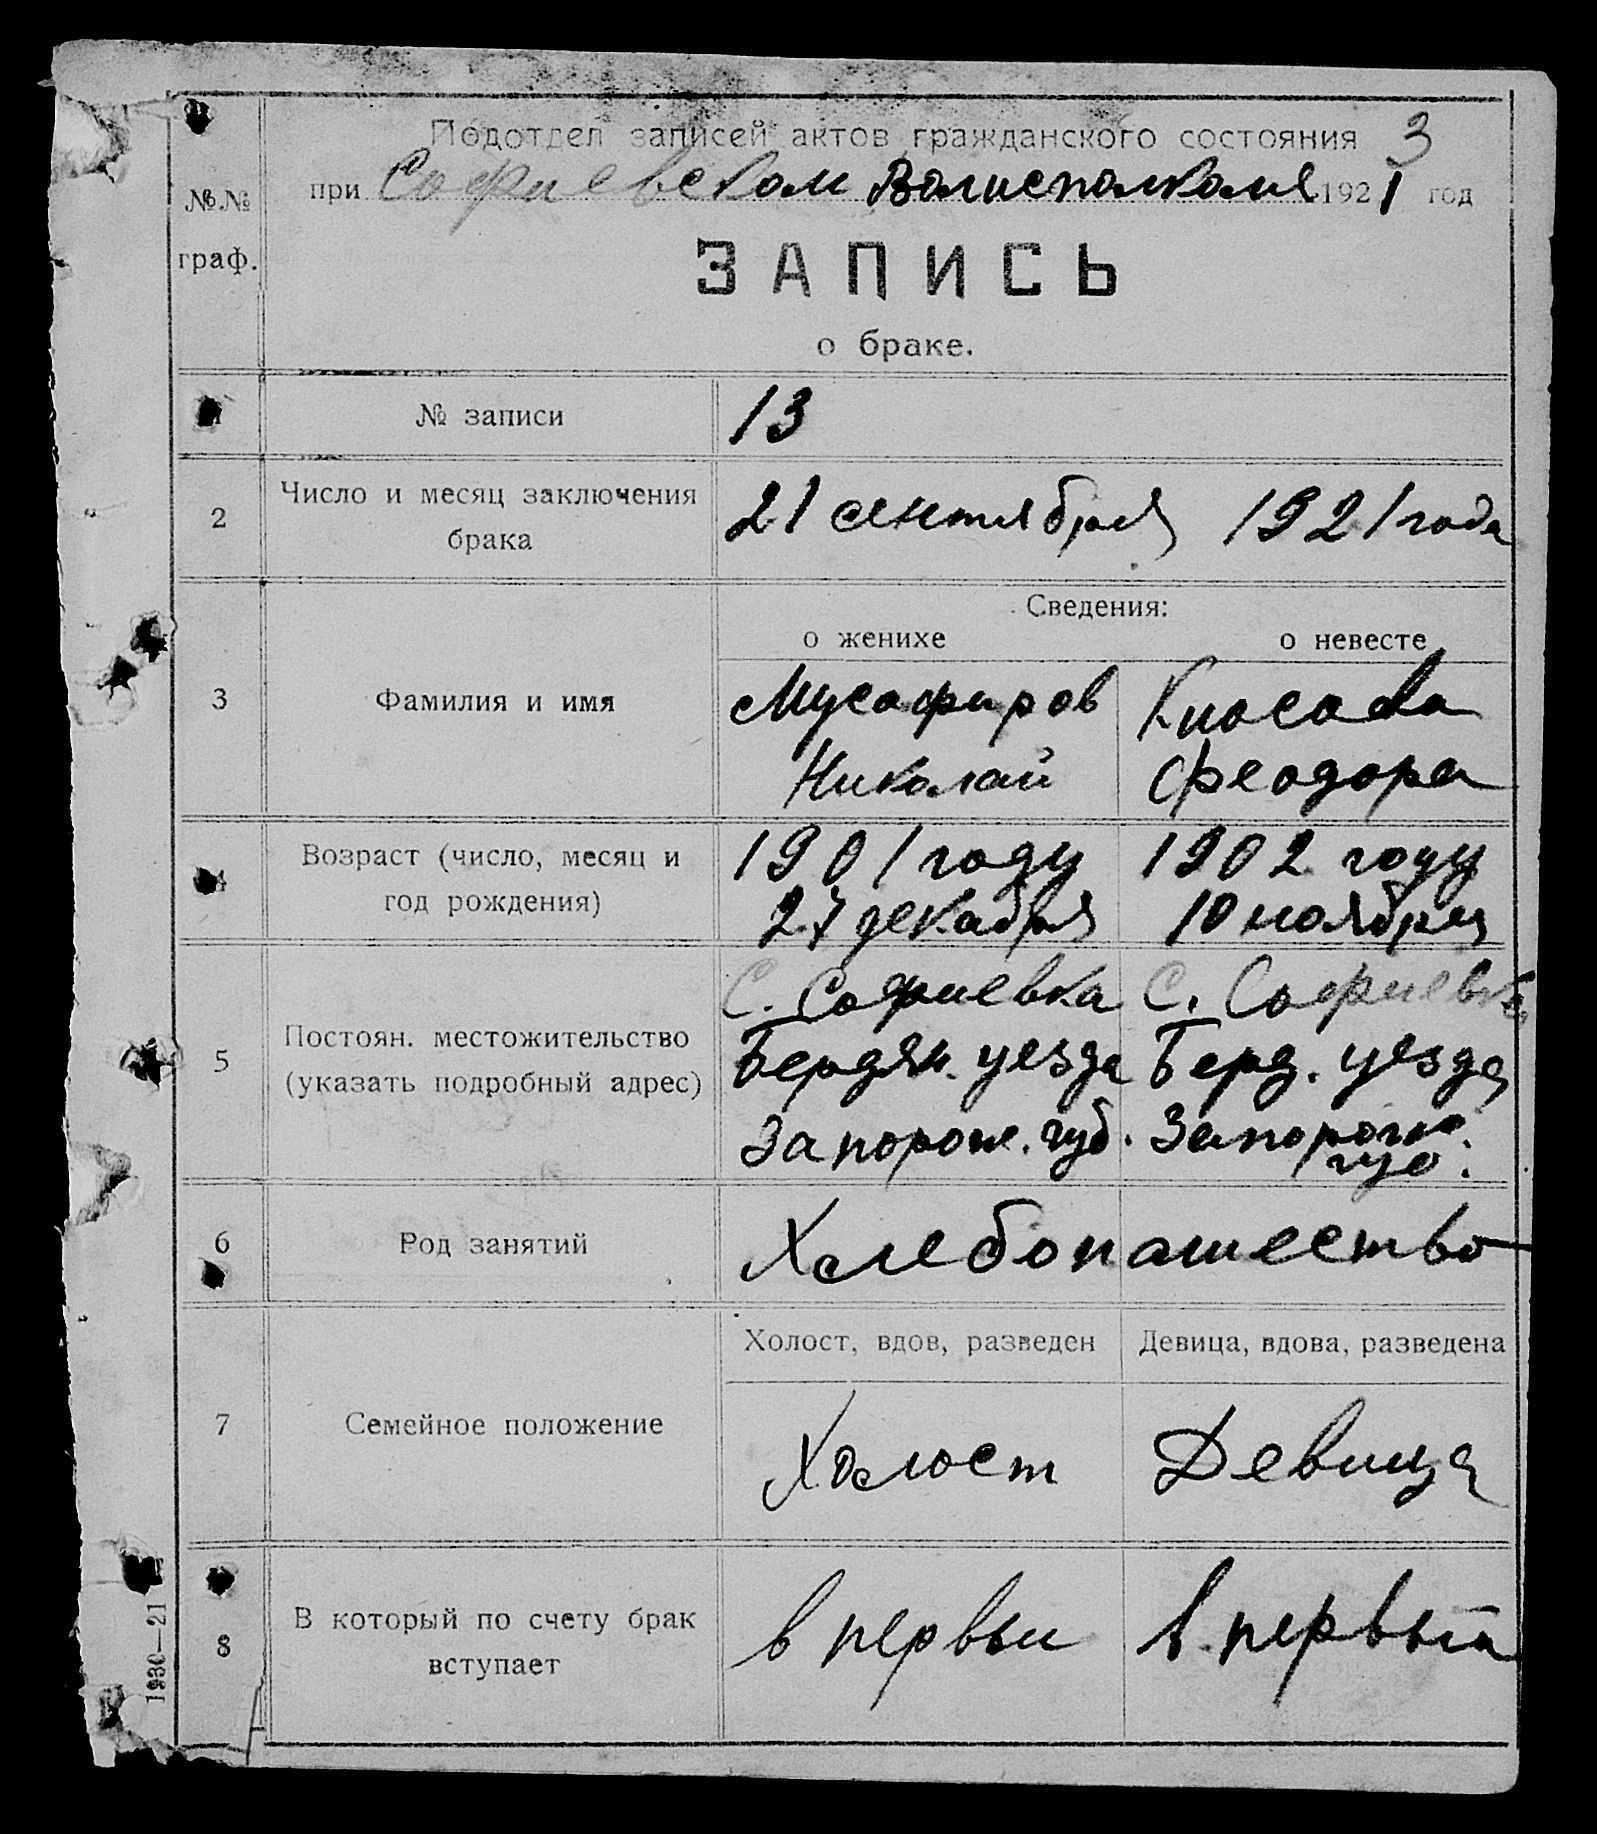 Подотдел записей актов гражданского состояния 3
№№ граф.
при Софиевском Волисполкоме 1921 год
ЗАПИСЬ
о браке.
№ записи 13
2 Число и месяц заключения 21 сентября 1921 года
брака
Сведения:
о женихе о невесте
3 Фамилия и имя Мусафиров Киосова
Николай Феодора
4 Возраст (число, месяц и 1901 году 1902 году
год рождения) 27 декабря 10 ноября
С. Софиевка С. Софиевка
5 Постоян. местожительство Бердян. уезда Берд. уезда
(указать подробный адрес) Запорож. губ. Запорож.
губ.
6 Род занятий Хлебопашество
Холост, вдов, разведен Девица, вдова, разведена
7 Семейное положение Холост Девица
8 В который по счету брак в первый в первый
вступает
1930—21